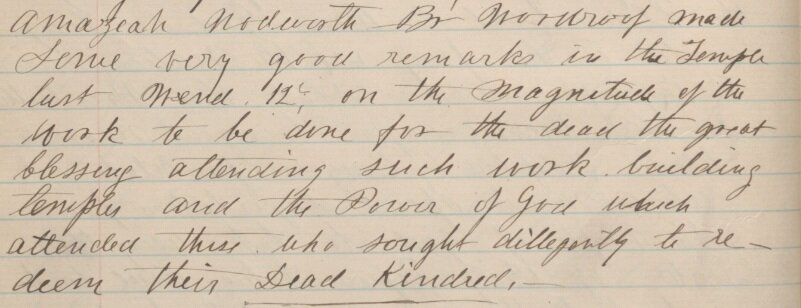 Amazeah Wodworth Br Woodroof made
Some very good remarks in the Temple
last Wend. 12, on the Magnitude of the
work to be done for the dead the great
blessing attending such work. building
temples and the Power of God which
attended those who sought dillegently to re-
deem their Dead Kindred,-